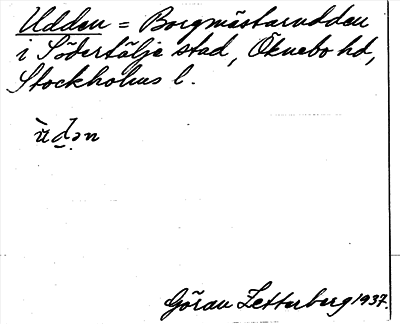 Udden = Borgmästarudden
i Södertälje stad, Öknebo hd,
Stockholms l.
ù̱dən
Göran Zetterberg 1937.